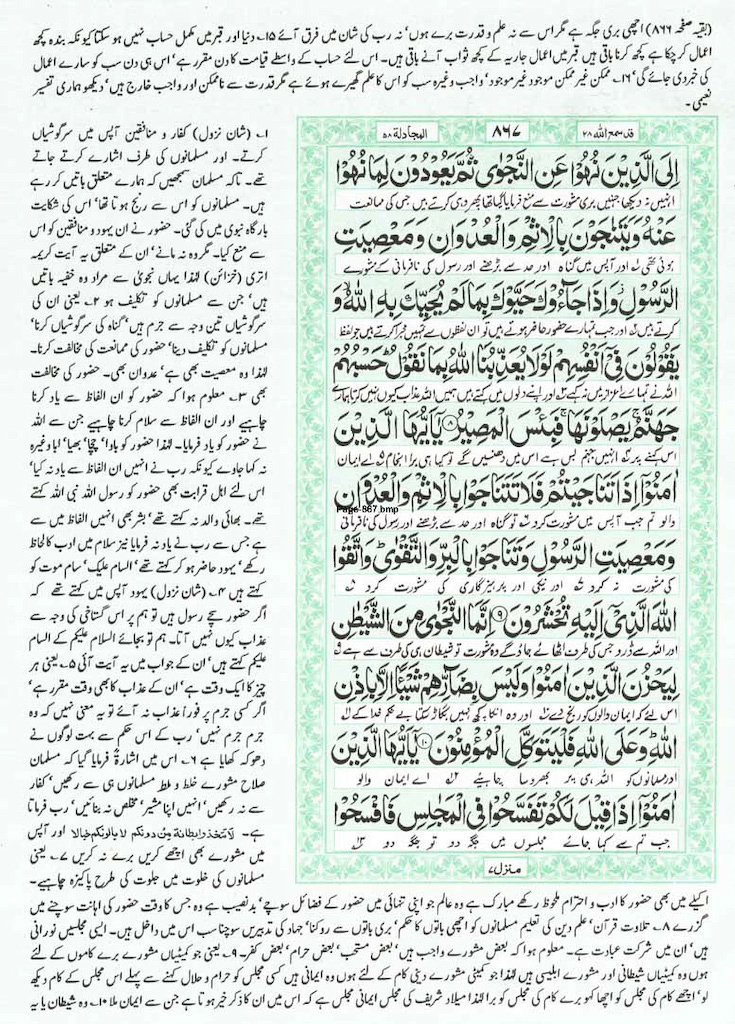 (بقیہ صفحہ ۸۶۶) اچھی بری جگہ ہے مگر اس سے نہ علم و قدرت برے ہوں' نہ رب کی شان میں فرق آئے ۱۵۔ دنیا اور قبر میں مکمل حساب نہیں ہو سکتا کیونکہ بندہ کچھ
اعمال کر چکا ہے کچھ کرنا باقی ہیں قبر میں اعمال جاریہ کے کچھ ثواب آنے باقی ہیں۔ اس لئے حساب کے واسطے قیامت کا دن مقرر ہے' اس ہی دن سب کو سارے اعمال
کی خبر دی جائے گی' ۱۶۔ ممکن غیر ممکن موجود غیر موجود' واجب وغیرہ سب کو اس کا علم گھیرے ہوئے ہے مگر قدرت سے ناممکن اور واجب خارج ہیں' دیکھو ہماری تفسیر
نعیمی۔
قد سمع الله ۲۸
۸۶۷
المجادلة ۵۸
اِلَى الَّذِيْنَ نُهُوْا عَنِ النَّجْوٰى ثُمَّ يَعُوْدُوْنَ لِمَا نُهُوْا
انہیں نہ دیکھا جنہیں بری مشورت سے منع فرمایا گیا تھا پھر وہی کرتے ہیں جس کی ممانعت
عَنْهُ وَيَتَنٰجَوْنَ بِالْاِثْمِ وَالْعُدْوَانِ وَمَعْصِيَتِ
ہوئی تھی اور آپس میں گناہ اور حد سے بڑھنے اور رسول کی نافرمانی کے مشورے
الرَّسُوْلِ وَاِذَا جَآءُوْكَ حَيَّوْكَ بِمَا لَمْ يُحَيِّكَ بِهِ اللّٰهُ وَ
کرتے ہیں اور جب تمہارے حضور حاضر ہوتے ہیں تو ان لفظوں سے تمہیں مجرا کرتے ہیں جو لفظ
يَقُوْلُوْنَ فِيْٓ اَنْفُسِهِمْ لَوْلَا يُعَذِّبُنَا اللّٰهُ بِمَا نَقُوْلُ حَسْبُهُمْ
اللہ نے تمہارے اعزاز میں نہ کہے اور اپنے دلوں میں کہتے ہیں ہمیں اللہ عذاب کیوں نہیں کرتا ہمارے
جَهَنَّمُ يَصْلَوْنَهَا فَبِئْسَ الْمَصِيْرُ ۸ يٰٓاَيُّهَا الَّذِيْنَ
اس کہنے پر انہیں جہنم بس ہے اس میں دھنسیں گے تو کیا ہی برا انجام اے ایمان
اٰمَنُوْٓا اِذَا تَنَاجَيْتُمْ فَلَا تَتَنَاجَوْا بِالْاِثْمِ وَالْعُدْوَانِ
Page-867.bmp
والو تم جب آپس میں مشورت کرو تو گناہ اور حد سے بڑھنے اور رسول کی نافرمانی
وَمَعْصِيَتِ الرَّسُوْلِ وَتَنَاجَوْا بِالْبِرِّ وَالتَّقْوٰى وَاتَّقُوا
کی مشورت نہ کرو اور نیکی اور پرہیزگاری کی مشورت کرو
اللّٰهَ الَّذِيْٓ اِلَيْهِ تُحْشَرُوْنَ ۹ اِنَّمَا النَّجْوٰى مِنَ الشَّيْطٰنِ
اور اللہ سے ڈرو جس کی طرف اٹھائے جاؤ گے وہ مشورت تو شیطان ہی کی طرف سے ہے
لِيَحْزُنَ الَّذِيْنَ اٰمَنُوْا وَلَيْسَ بِضَآرِّهِمْ شَيْـًٔا اِلَّا بِاِذْنِ
اس لئے کہ ایمان والوں کو رنج دے اور وہ ان کا کچھ نہیں بگاڑ سکتا بے حکم خدا کے
اللّٰهِ وَعَلَى اللّٰهِ فَلْيَتَوَكَّلِ الْمُؤْمِنُوْنَ ۱۰ يٰٓاَيُّهَا الَّذِيْنَ
اور مسلمانوں کو اللہ ہی پر بھروسا چاہیے اے ایمان والو
اٰمَنُوْٓا اِذَا قِيْلَ لَكُمْ تَفَسَّحُوْا فِي الْمَجٰلِسِ فَافْسَحُوْا
جب تم سے کہا جائے مجلسوں میں جگہ دو تو جگہ دو
منزل ۷
۱۔ (شان نزول) کفار و منافقین آپس میں سرگوشیاں
کرتے۔ اور مسلمانوں کی طرف اشارے کرتے جاتے
تھے۔ تاکہ مسلمان سمجھیں کہ ہمارے متعلق باتیں کر رہے
ہیں۔ مسلمانوں کو اس سے رنج ہوتا تھا' اس کی شکایت
بارگاہ نبوی میں کی گئی۔ حضور نے ان یہود و منافقین کو اس
سے منع کیا۔ مگر وہ نہ مانے' ان کے متعلق یہ آیت کریمہ
اتری (خزائن) لہٰذا یہاں نجویٰ سے مراد وہ خفیہ باتیں
ہیں' جن سے مسلمانوں کو تکلیف ہو ۲۔ یعنی ان کی
سرگوشیاں تین وجہ سے جرم ہیں' گناہ کی سرگوشیاں کرنا'
مسلمانوں کو تکلیف دینا' حضور کی ممانعت کی مخالفت کرنا۔
لہٰذا وہ معصیت بھی ہے' عدوان بھی۔ حضور کی مخالفت
بھی ۳۔ معلوم ہوا کہ حضور کو ان الفاظ سے یاد کرنا
چاہیے اور ان الفاظ سے سلام کرنا چاہیے جن سے اللہ
نے حضور کو یاد فرمایا۔ لہٰذا حضور کو باوا' چچا' بھیا' ابا وغیرہ
نہ کہا جاوے کیونکہ رب نے انہیں ان الفاظ سے یاد نہ کیا'
اس لئے اہل قرابت بھی حضور کو رسول اللہ نبی اللہ کہتے
تھے۔ بھائی والد نہ کہتے تھے' بشر بھی انہیں الفاظ میں سے
ہے جس سے رب نے یاد نہ فرمایا نیز سلام میں ادب کا لحاظ
رکھے' یہود حاضر ہو کر کہتے تھے' السام علیک' سام موت کو
کہتے ہیں ۴۔ (شان نزول) یہود آپس میں کہتے تھے کہ
اگر حضور سچے رسول ہیں تو ہم پر اس گستاخی کی وجہ سے
عذاب کیوں نہیں آتا۔ ہم تو بجائے السلام علیکم کے السام
علیکم کہتے ہیں' ان کے جواب میں یہ آیت آئی ۵۔ یعنی ہر
چیز کا ایک وقت ہے' ان کے عذاب کا بھی وقت مقرر ہے'
اگر کسی جرم پر فوراً عذاب نہ آئے تو یہ معنی نہیں کہ وہ
جرم جرم نہیں' رب کے اس حکم سے بہت لوگوں نے
دھوکہ کھایا ہے ۶۔ اس میں اشارۃً فرمایا گیا کہ مسلمان
صلاح مشورے خلط و ملط مسلمانوں ہی سے رکھیں' کفار
سے نہ رکھیں' انہیں اپنا مشیر' مخلص نہ بنائیں' رب فرماتا
ہے۔ لا تتخذوا بطانة من دونكم لا يالونكم خبالا اور آپس
میں مشورے بھی اچھے کریں برے نہ کریں ۷۔ یعنی
مسلمانوں کی خلوت میں جلوت کی طرح پاکیزہ چاہیے۔
اکیلے میں بھی حضور کا ادب و احترام ملحوظ رکھے مبارک ہے وہ عالم جو اپنی تنہائی میں حضور کے فضائل سوچے' بدنصیب ہے وہ جس کا وقت حضور کی اہانت سوچنے میں
گزرے ۸۔ تلاوت قرآن' علم دین کی تعلیم مسلمانوں کو اچھی باتوں کا حکم' بری باتوں سے روکنا' جہاد کی تدبیریں سوچنا سب اس میں داخل ہیں۔ ایسی مجلسیں نورانی
ہیں' ان میں شرکت عبادت ہے۔ معلوم ہوا کہ بعض مشورے واجب ہیں' بعض مستحب' بعض حرام' بعض کفر۔ ۹۔ یعنی جو کمیٹیاں مشورے برے کاموں کے لئے
ہوں وہ کمیٹیاں شیطانی اور مشورے ابلیسی ہیں لہٰذا جو کمیٹی مشورے دینی کام کے لئے ہوں وہ ایمانی ہیں کسی مجلس کو حرام و حلال کہنے سے پہلے اس مجلس کے کام دیکھ
لو' اچھے کام کی مجلس کو اچھا کہو برے کام کی مجلس کو برا لہٰذا میلاد شریف کی مجلس ایمانی مجلس ہے کہ اس میں ان کا ذکر خیر ہوتا ہے جن سے ایمان ملا ۱۰۔ وہ شیطان یا یہ